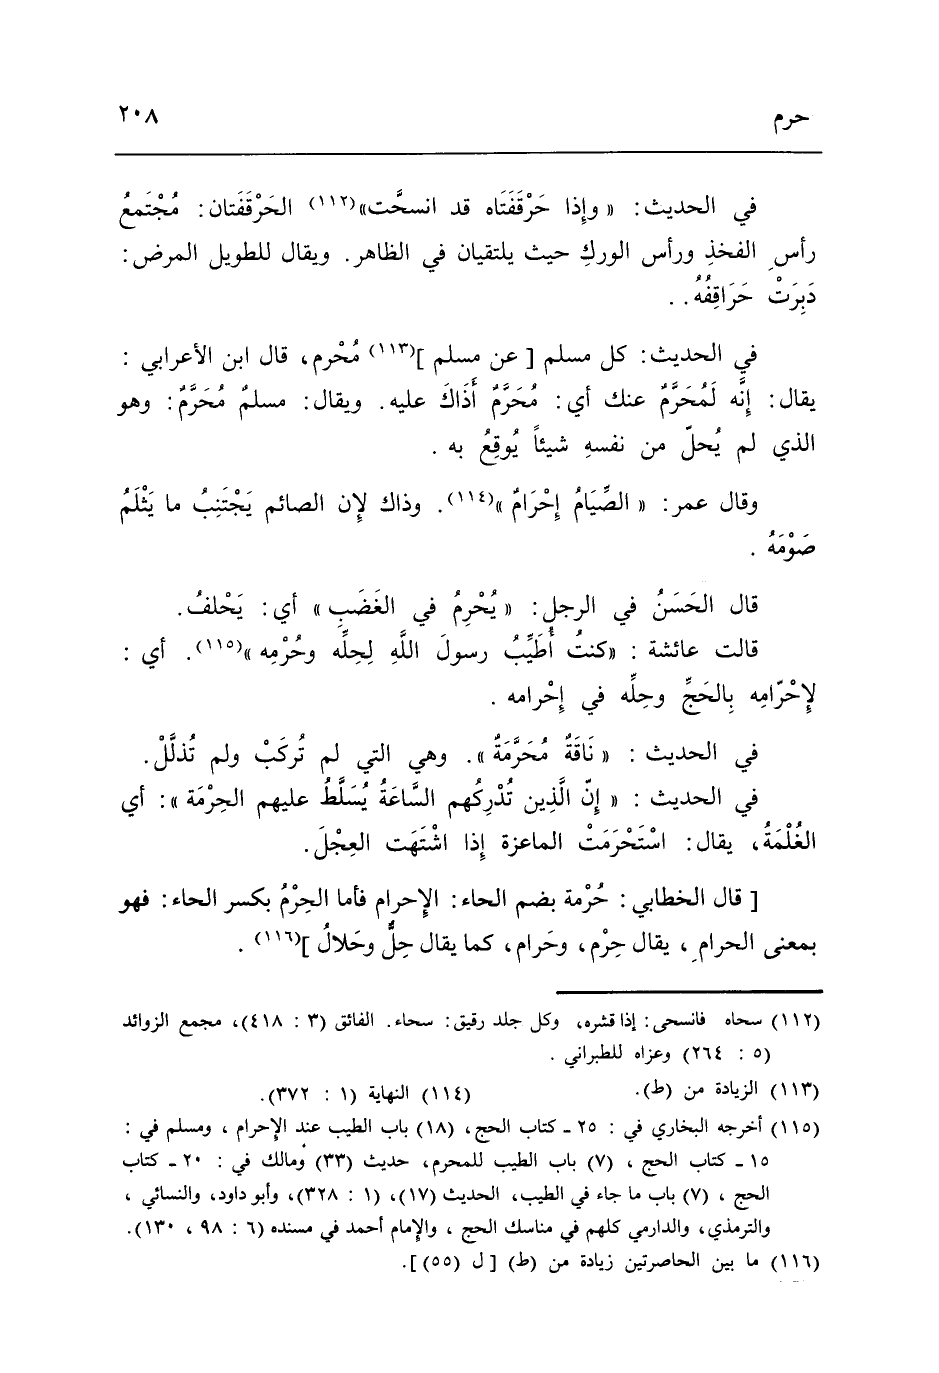 حرم ٢٠٨
في الحديث: « وإذا حَرْقَفَتَاه قد انسحَّت»(١١٢) الحَرْقَفَتان: مُجْتَمعُ
رأسِ الفخذِ ورأس الوركِ حيث يلتقيان في الظاهر. ويقال للطويل المرض:
دَبِرَتْ حَرَاقِفُهُ. .
في الحديث: كل مسلم [ عن مسلم ](١١٣) مُحْرم، قال ابن الأعرابي :
يقال: إِنَّه لَمُحَرَّمٌ عنك أي: مُحَرَّمٌ أَذَاكَ عليه. ويقال: مسلمٌ مُحَرَّمٌ: وهو
الذي لم يُحلّ من نفسهِ شيئاً يُوقِعُ به .
وقال عمر: « الصِّيَامُ إِحْرَامٌ »(١١٤). وذاك لإن الصائم يَجْتَنِبُ ما يَثْلَمُ
صَوْمَهُ .
قال الحَسَنُ في الرجلِ: « يُحْرِمُ في الغَضَبِ » أي: يَحْلفُ.
قالت عائشة : «كنتُ أُطَيِّبُ رسولَ اللَّهِ لِحِلِّه وحُرْمِه »(١١٥). أي :
لإِحْرّامِه بِالحَجِّ وحِلِّه في إِحْرامه .
في الحديث : « نَاقَةٌ مُحَرَّمَةٌ ». وهي التي لم تُركَبْ ولم تُذلَّلْ.
في الحديث : « إِنّ الَّذِين تُدْرِكُهم السَّاعَةُ يُسَلَّطُ عليهم الحِرْمَة »: أي
الغُلْمَةُ، يقال: اسْتَحْرَمَتْ الماعزة إِذا اشْتَهَت العِجْلَ.
[ قال الخطابي: حُرْمة بضم الحاء: الإحرام فأما الحِرْمُ بكسر الحاء: فهو
بمعنى الحرامِ ، يقال حِرْم، وحَرام، كما يقال حِلٌّ وحَلالُ ](١١٦) .
(١١٢) سحاه فانسحى: إذا قشره، وكل جلد رقيق: سحاء. الفائق (٣ : ٤١٨)، مجمع الزوائد
(٥ : ٢٦٤) وعزاه للطبراني .
(١١٣) الزيادة من (ط). (١١٤) النهاية (١ : ٣٧٢).
(١١٥) أخرجه البخاري في : ٢٥ ـ كتاب الحج، (١٨) باب الطيب عند الإحرام ، ومسلم في :
١٥ ـ كتاب الحج ، (٧) باب الطيب للمحرم، حديث (٣٣) ومالك في : ٢٠ ـ كتاب
الحج ، (٧) باب ما جاء في الطيب، الحديث (١٧)، (١ : ٣٢٨)، وأبو داود، والنسائي ،
والترمذي، والدارمي كلهم في مناسك الحج ، والإمام أحمد في مسنده (٦ : ٩٨ ، ١٣٠).
(١١٦) ما بين الحاصرتين زيادة من (ط) [ ل (٥٥) ].